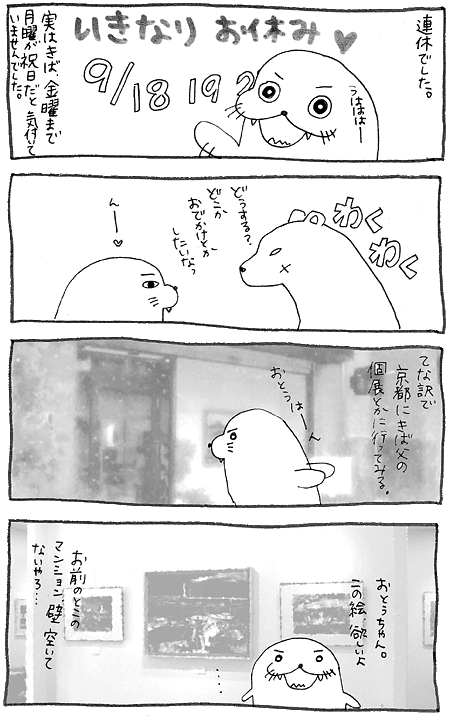 連休でした。
いきなり お休み♥
9/18 19?
うははー
実はきば、金曜まで
月曜が祝日だと気付いて
いませんでした。
わくわく
どうする?
どこか
おでかけとか
したいな?
んー♡
てな訳で
京都にきば父の
個展とかに行ってみる。
おとうはーん
おとうちゃん。
この絵、欲しいよ
……
お前のとこの
マンション、壁空いて
ないやろ…